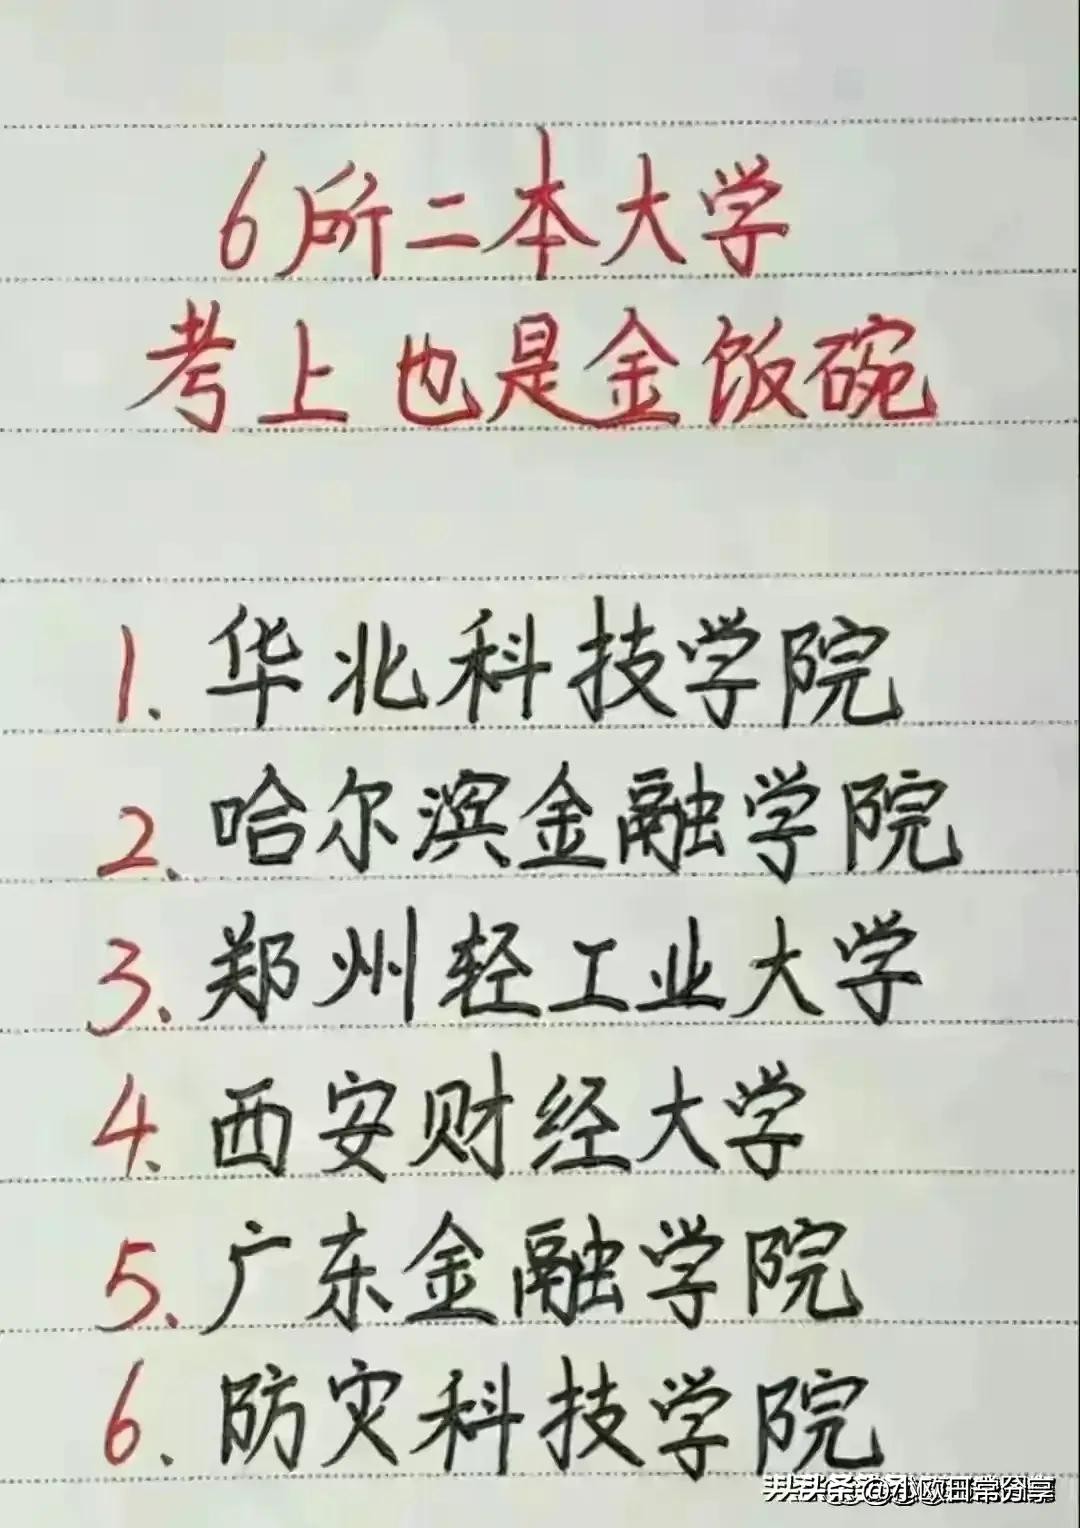 6所二本大学
考上也是金饭碗
1.华北科技学院
2.哈尔滨金融学院
3.郑州轻工业大学
4.西安财经大学
5.广东金融学院
6.防灾科技学院
头条@小欧日常分享